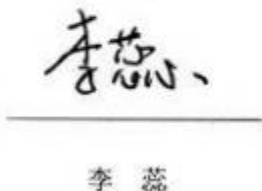 李蕊
李 蕊